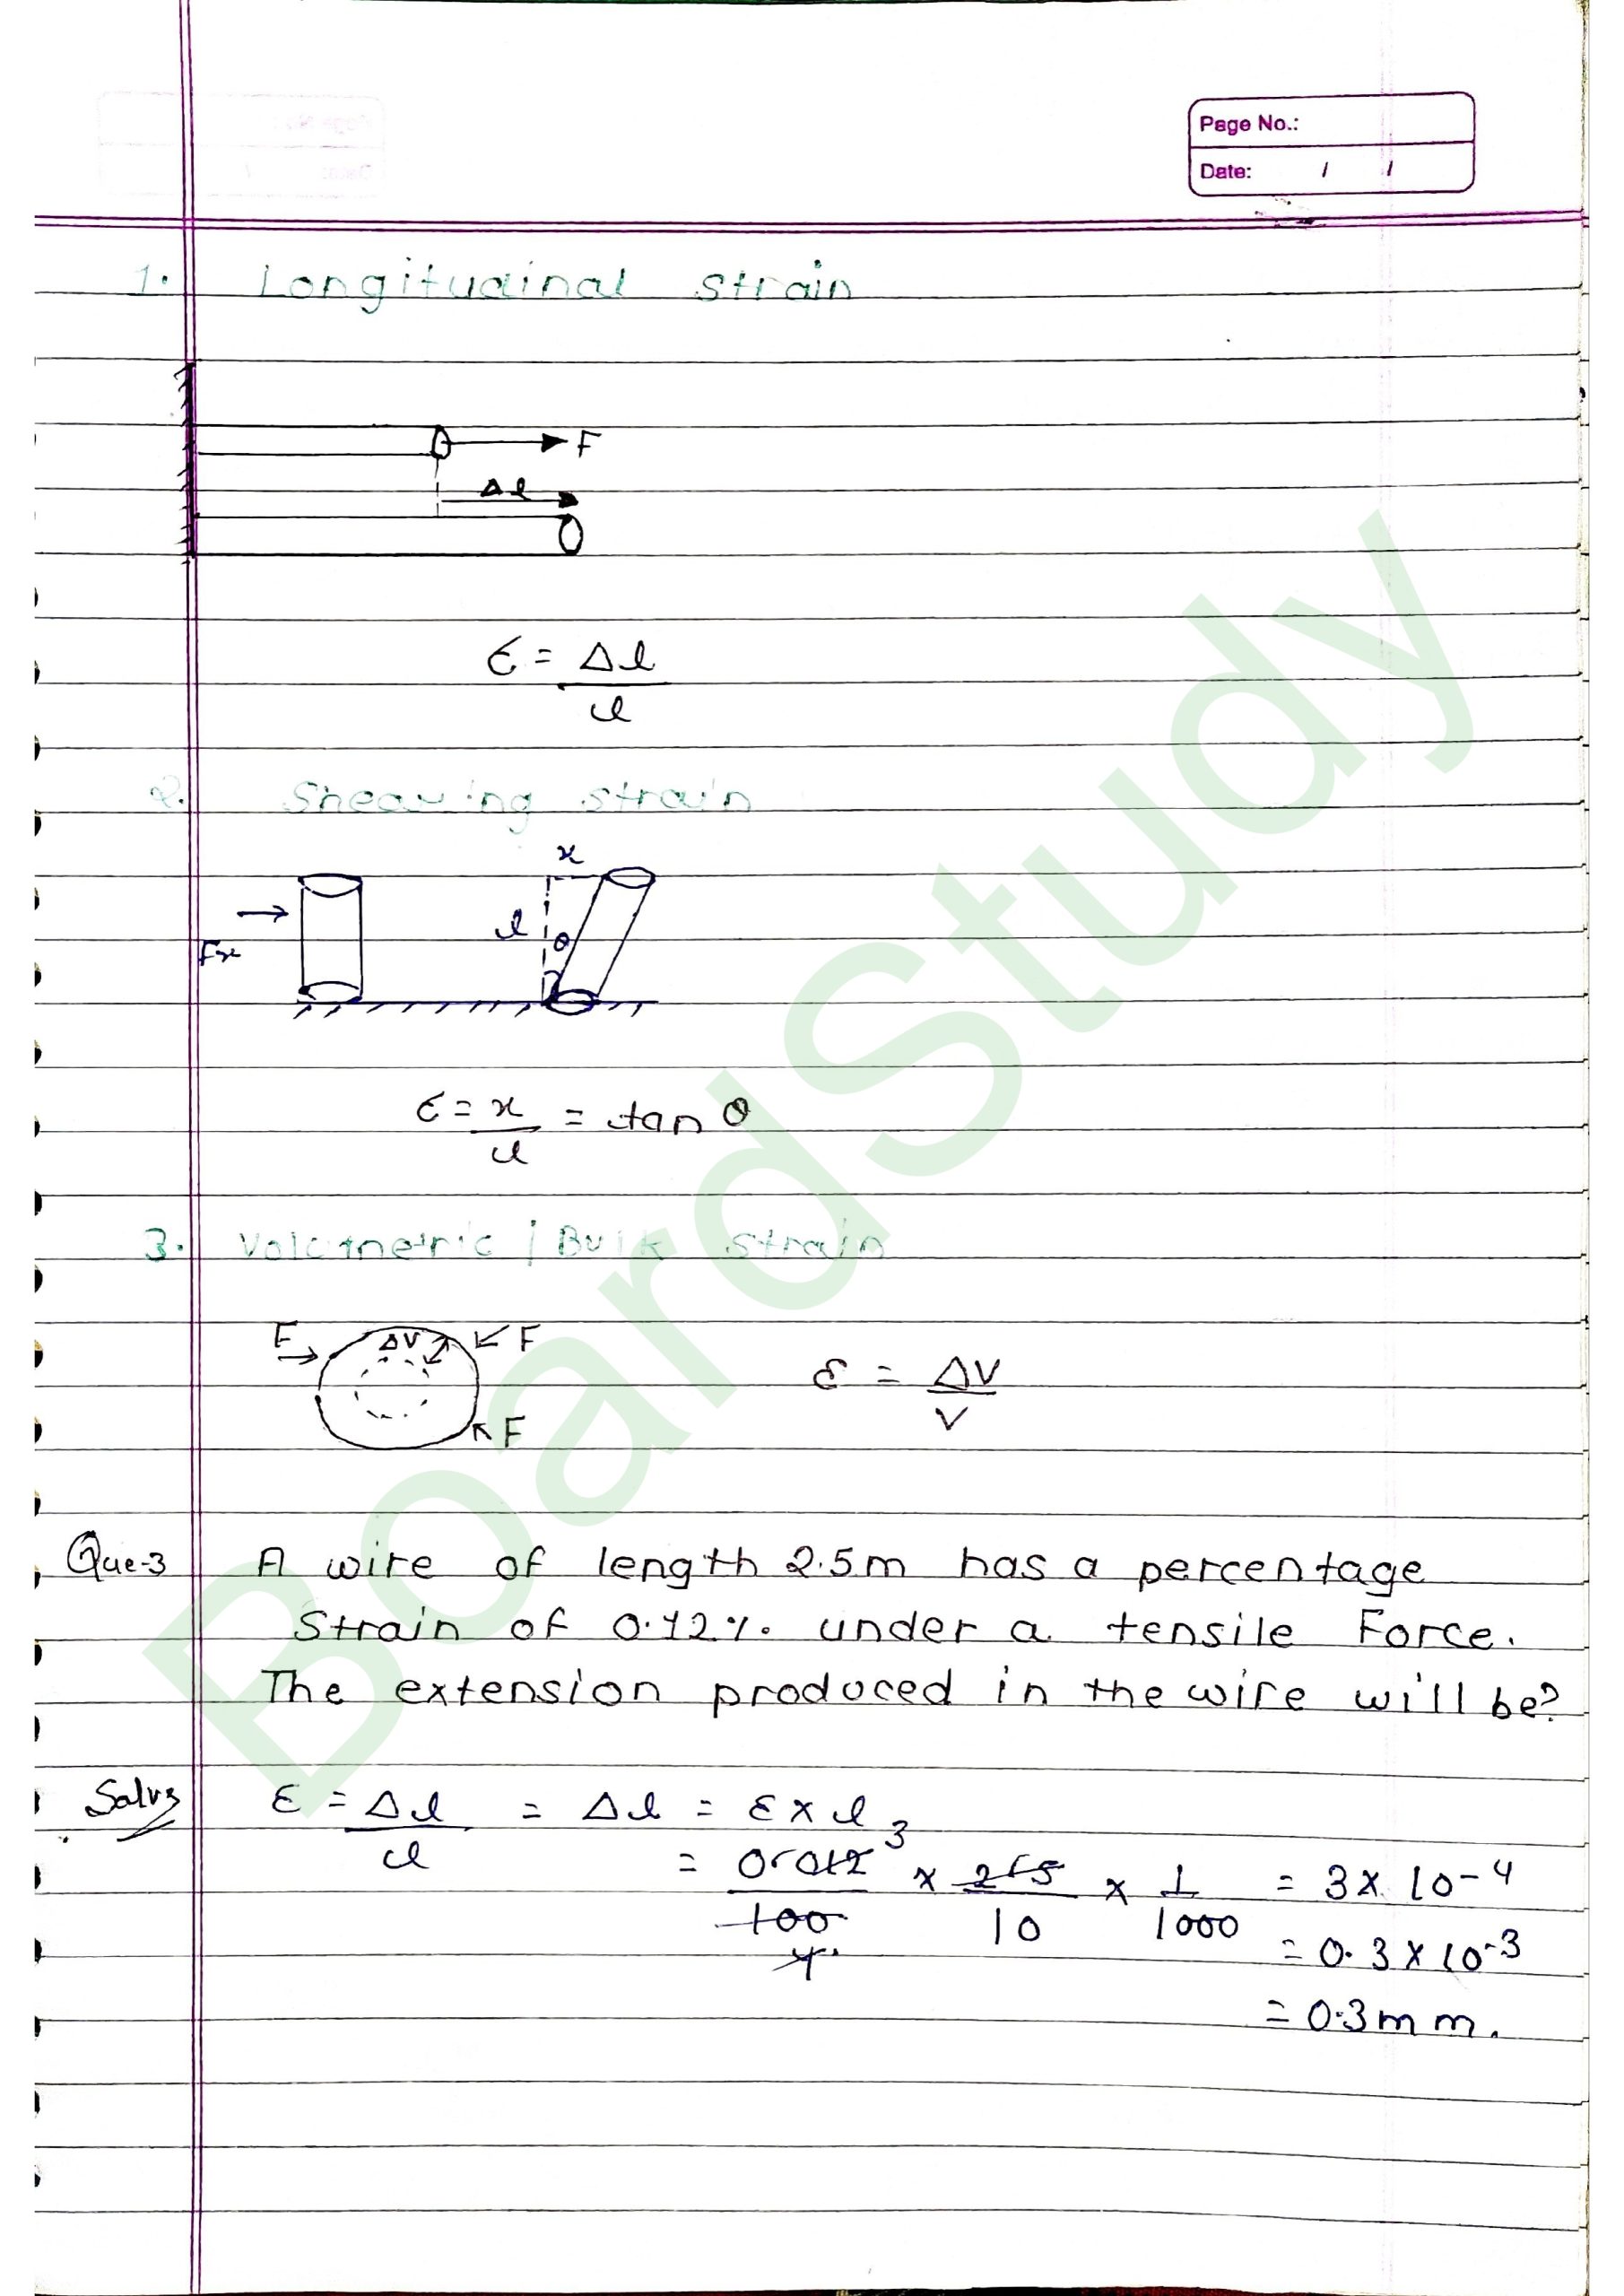 Page No.:
Date: / /
1. Longitudinal strain
F
Δl
ε = Δl
l
2. Shearing strain
x
l
θ
Fx
ε = x = tan θ
l
3. Volumetric / Bulk strain
F ΔV F
F
ε = ΔV
V
Que-3 A wire of length 2.5m has a percentage
strain of 0.12% under a tensile Force.
The extension produced in the wire will be?
ε = Δl = Δl = ε x l
l
= 0.012 3 x 25 x 1 = 3 x 10-4
100 10 1000
4
= 0.3 x 10-3
= 0.3 mm.
BoardStudy